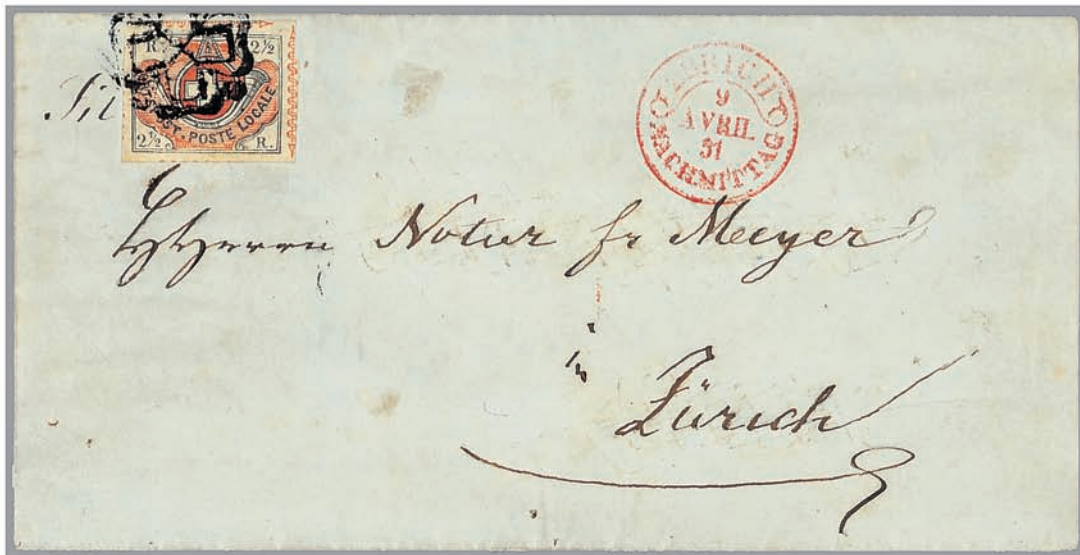 R. 2½
Tit
POSTE LOCALE
2½ R.
ZÜRICH
9
AVRIL
51
NACHMITTAG
Herrn Notar fr Meyer
in
Zürich